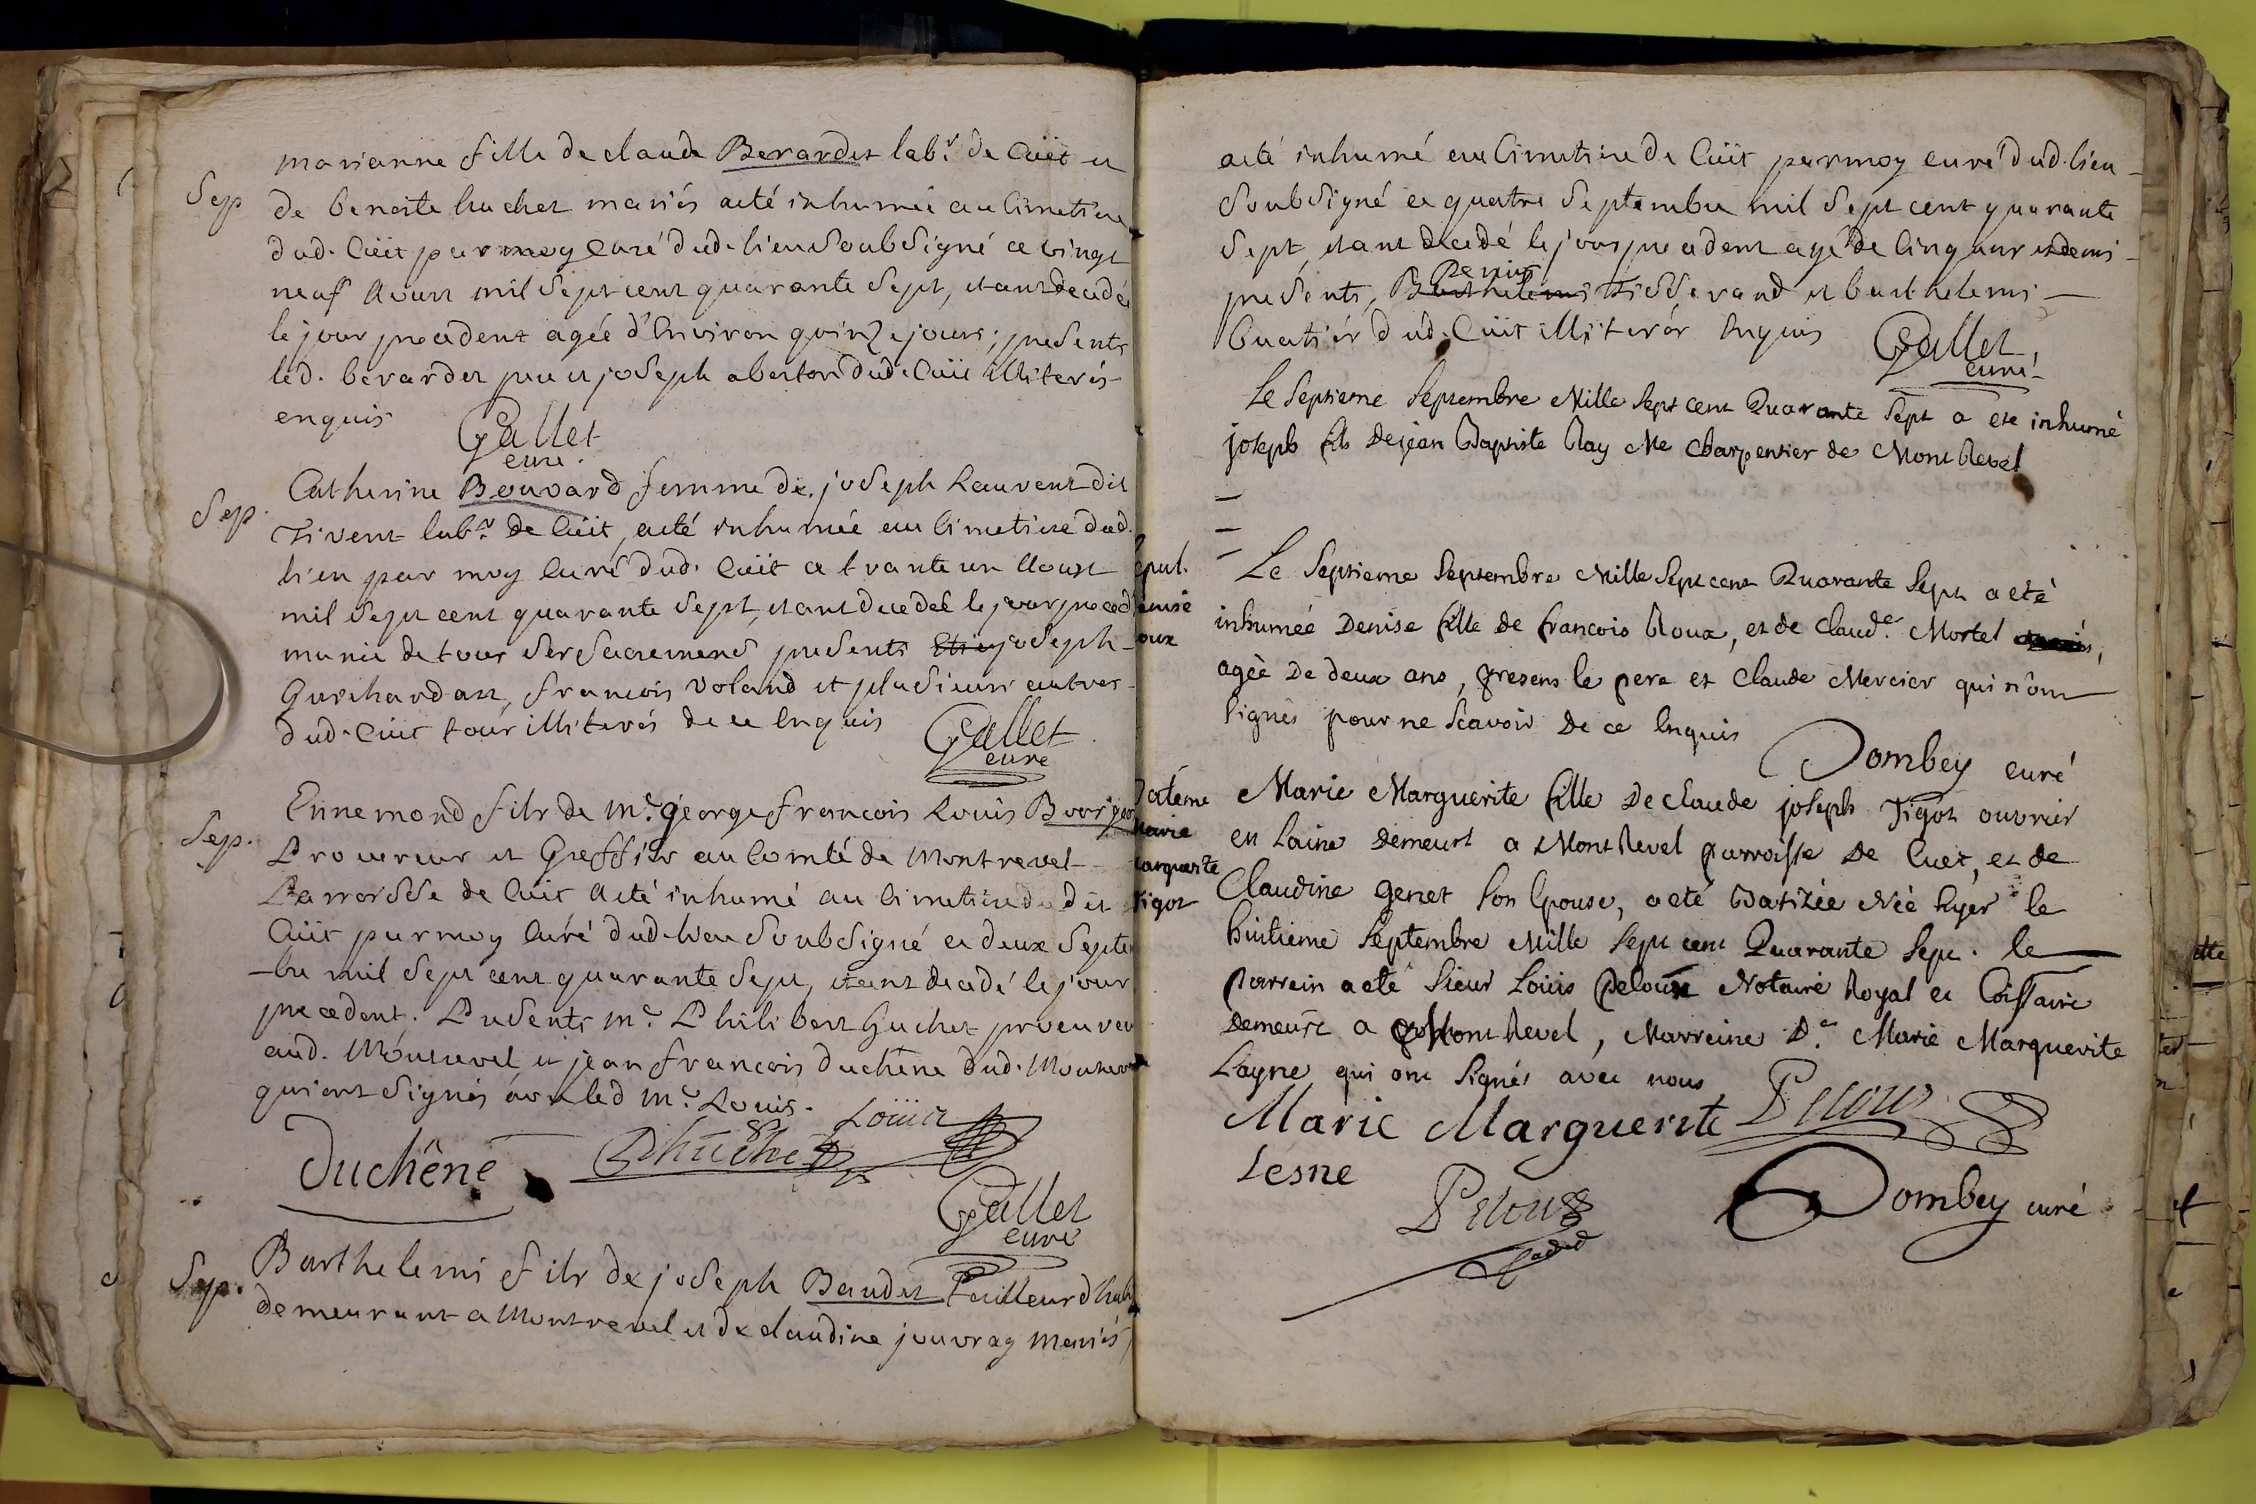 marianne fille de claude Berardet lab.r de Cuët et
Sep de benoite huchet mariés a eté inhumée au cimetiere
dud. Cuët par moy curé dud. lieu soubsigné ce vingt
neuf Aoust mil sept cent quarante sept, etant decedée
le jour precedent agée d'Environ quinze jours; presents
led. berardet pere et joseph dud. Cuët illiterés
enquis Gallet
curé.
Catherine Bouvard femme de joseph Laurent dit
Sep. Tivent lab.r de Cuët, a eté inhumée au cimetiere dud.
lieu par moy curé dud. Cuët ce trante un Aoust
mil sept cent quarante sept, etant decedée le jour preced
munie de tous ses sacremens presents joseph
Guichardan, francois voland et plusieurs autres
dud. Cuët tous illiterés de ce Enquis Gallet
curé
Ennemond fils de m.e george francois Louis
Sep. Procureur et Greffier au Comté de Montrevel
Parroisse de Cuët a eté inhumé au cimetiere dudit
Cuët par moy curé dud. lieu soubsigné ce deux Septem
-bre mil sept cent quarante sept, etant decedé le jour
precedent. Presents m.e Philibert huchet procureur
aud. Montrevel et jean francois duchêne dud. Montrevel
qui ont signés avec led m.e Louis.
Loüis
Duchêne Phuchet
Gallet
curé
Sep. Barthelemi fils de joseph Baudet Tailleur d'hab
demeurant a Montrevel et de claudine jouvray mariés,
a eté inhumé au Cimetiere de Cuët par moy curé dud. lieu
Soubsigné ce quatre Septembre mil sept cent quarante
Sept, etant decedé le jour precedent agé de cinq ans et demi
Denis
presents, Barthelemi Tisserand et barthelemi
buatier dud. Cuët illiterés Enquis Gallet,
curé
Le Septieme Septembre Mille Sept cent Quarante Sept a ete inhumé
joseph fils de jean Baptiste Ray Me Charpentier de MontRevel
Le Septieme Septembre Mille Sept cent Quarante Sept a eté
épul.
inhumée Denise fille de francois Roux, et de Claude Mortel mariés,
enise
oux
agée De deux ans, presens le pere et Claude Mercier qui n'ont
signés pour ne sçavoir De ce Enquis
Dombey curé
Marie Marguerite fille De claude joseph Tigot ouvrier
Batême
Marie
en Laine Demeurt a MontRevel parroisse De Cuet, et de
Marguerite
Claudine genet son Epouse, a eté Batizée Née hyer le
Tigot
huitieme Septembre Mille Sept cent Quarante Sept. le
Parrein a eté Sieur Loüis Peloux Notaire Royal et
Demeurt a MontRevel, Marreine D.e Marie Marguerite
Layne qui ont signés avec nous
Marie Marguerite Peloux
Lesne
Peloux
Dombey curé